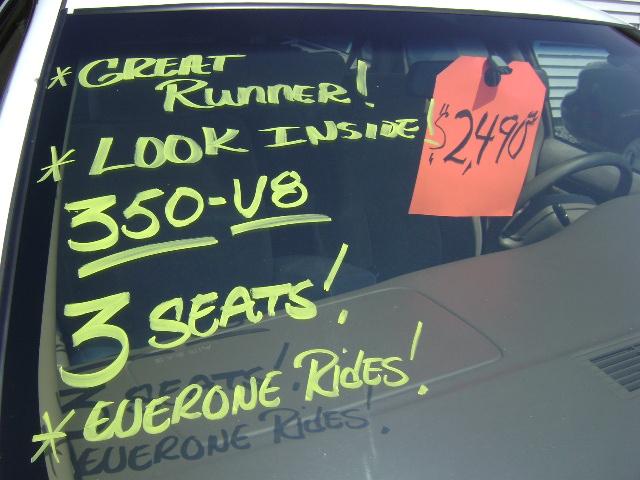 * GREAT
RUNNER!
* LOOK INSIDE!
350-V8
3 SEATS!
* EVERONE RIDES!
$2,490